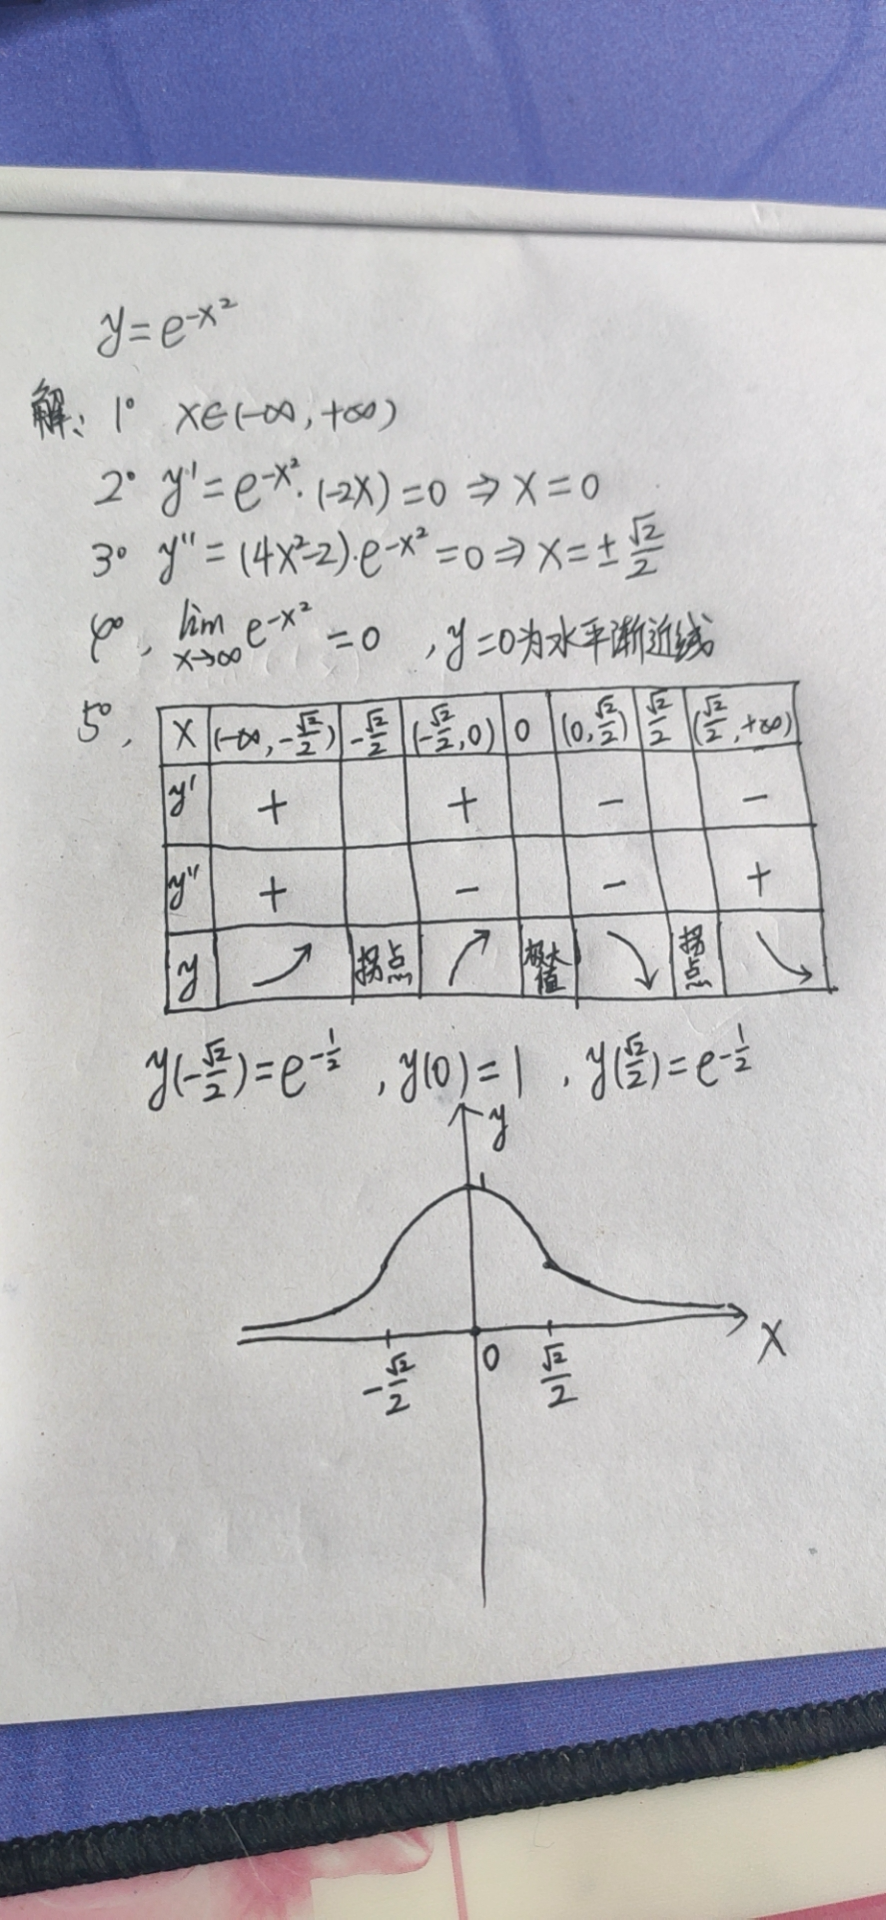 y=e^{-x²}
解: 1° x∈(-∞, +∞)
2° y'=e^{-x²}·(-2x)=0 ⇒ x=0
3° y''=(4x²-2)·e^{-x²}=0 ⇒ x=±√2/2
4°, lim x→∞ e^{-x²} =0 , y=0为水平渐近线
5°,
x (-∞, -√2/2) -√2/2 (-√2/2, 0) 0 (0, √2/2) √2/2 (√2/2, +∞)
y' + + - -
y'' + - - +
y 拐点 极大值 拐点
y(-√2/2)=e^{-1/2} , y(0)=1 , y(√2/2)=e^{-1/2}
y
1
x
-√2/2 0 √2/2